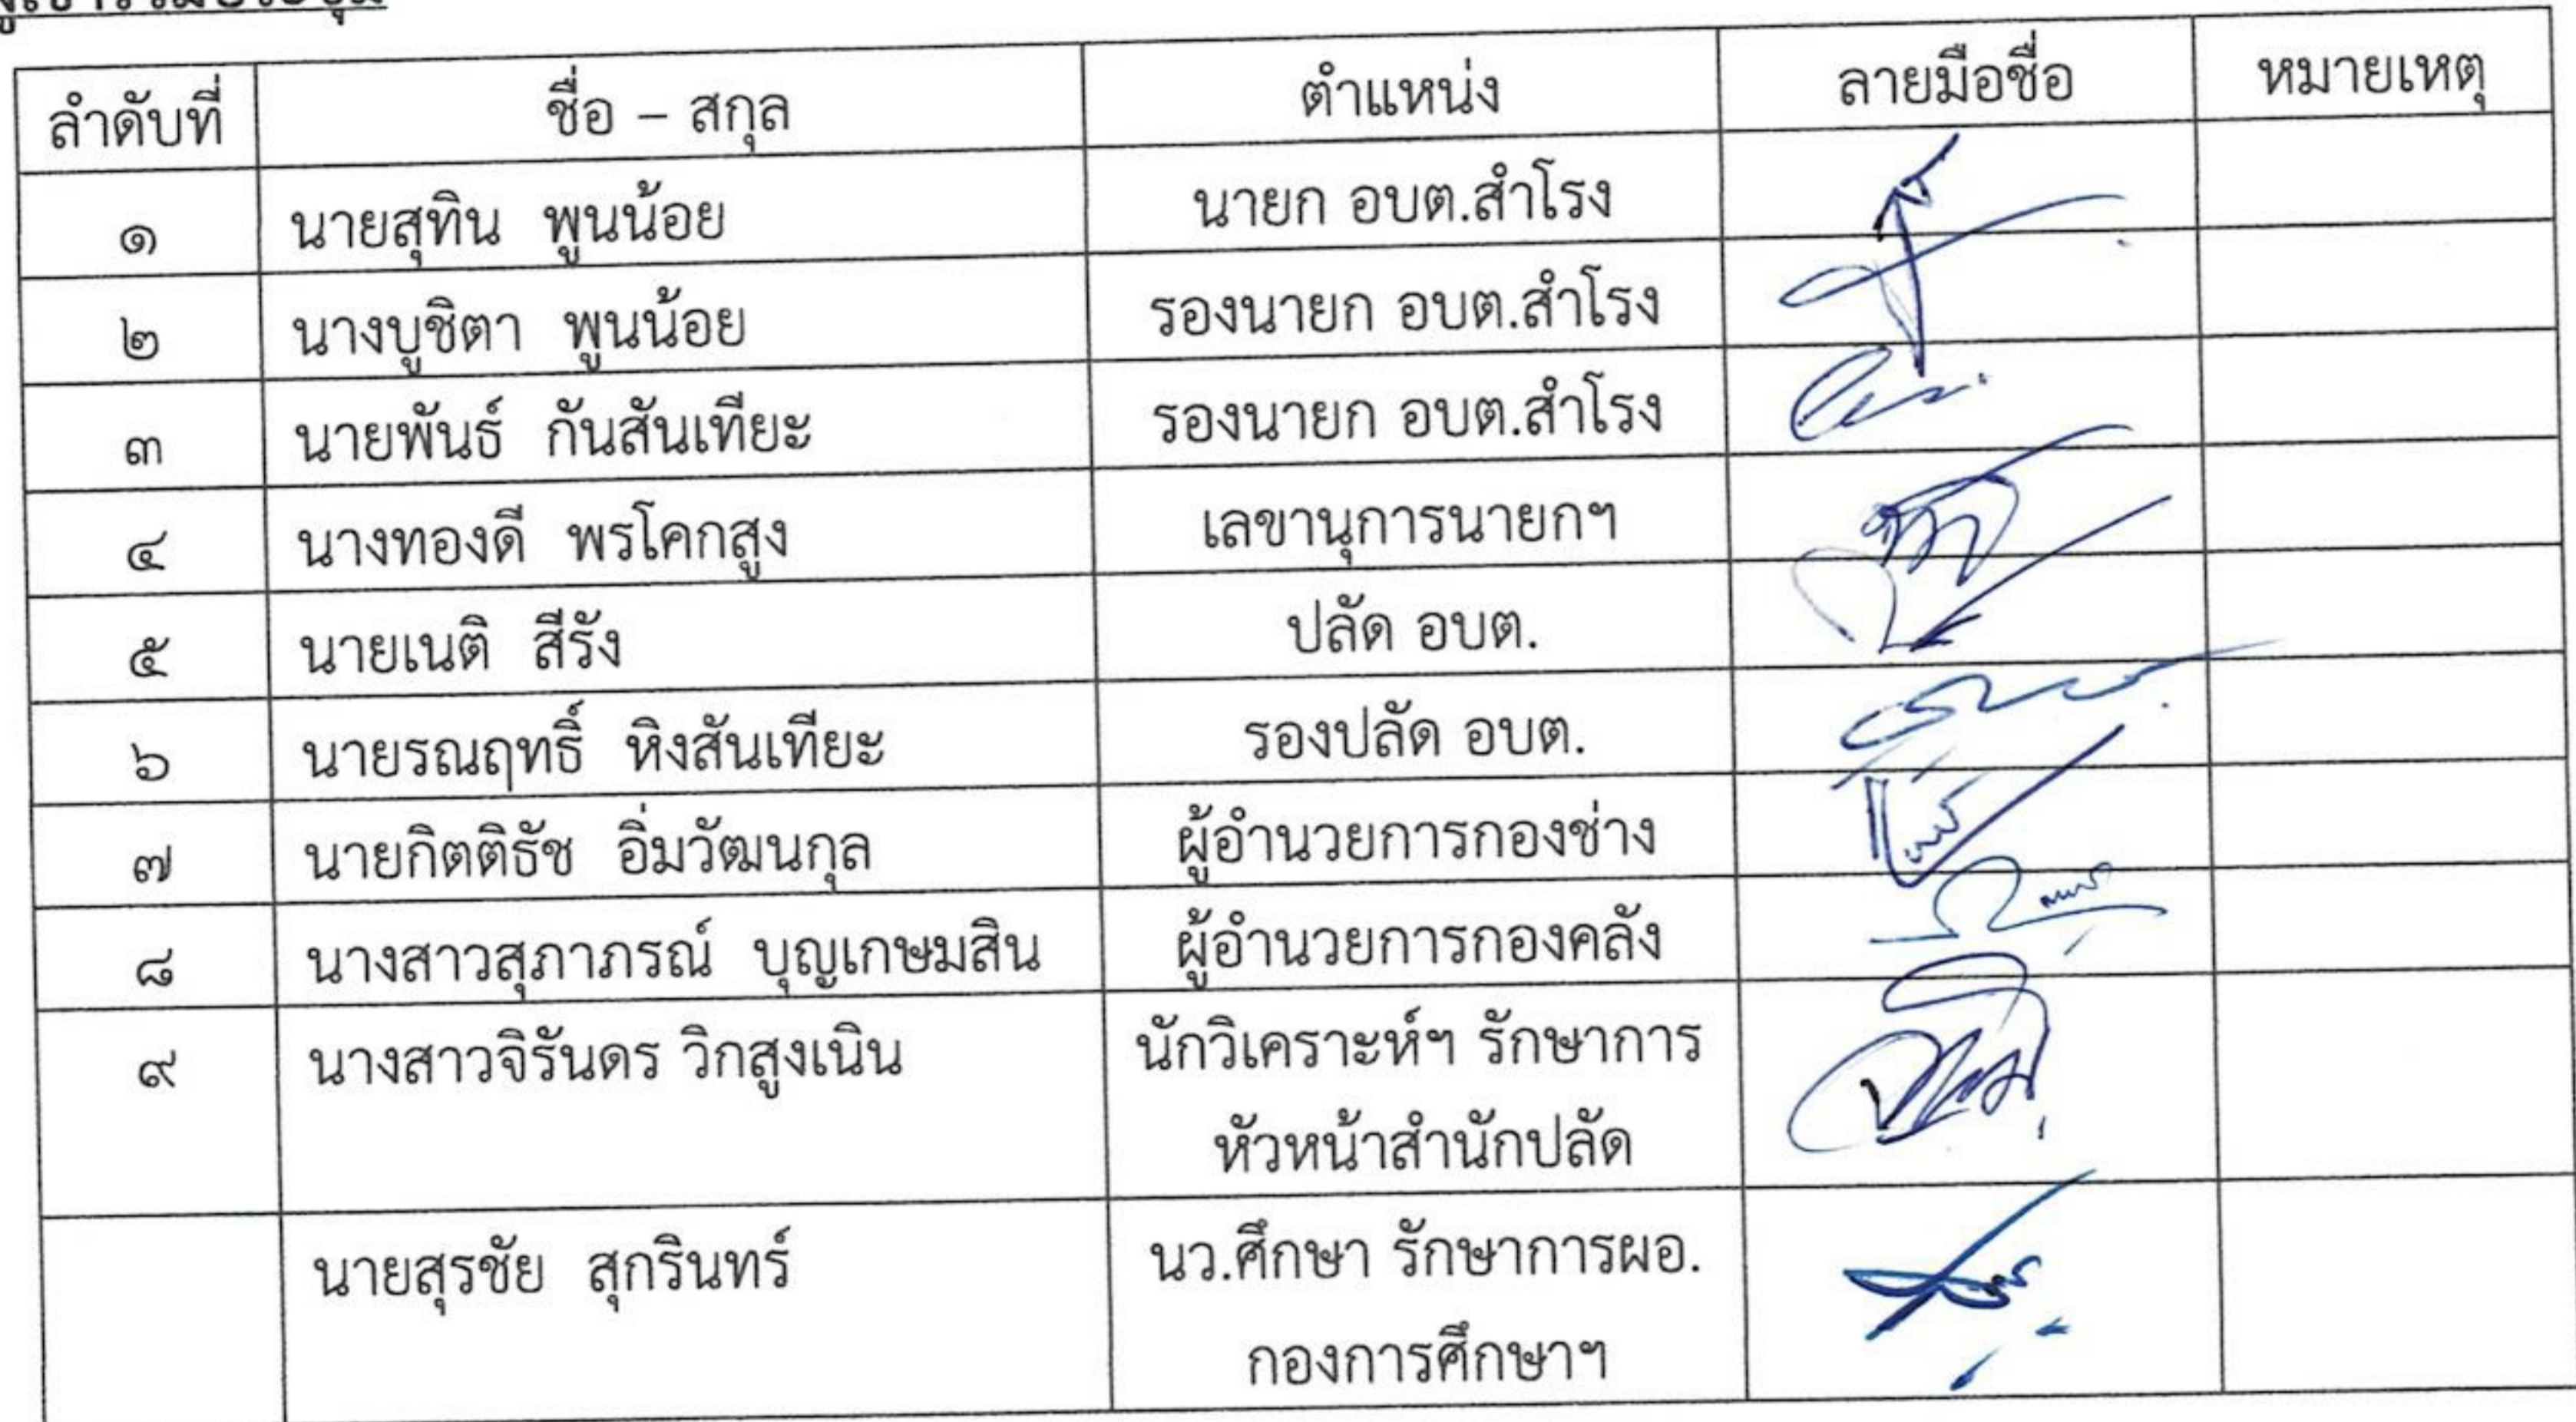 ผู้เข้าร่วมประชุม
ลำดับที่ ชื่อ – สกุล ตำแหน่ง ลายมือชื่อ หมายเหตุ
๑ นายสุทิน พูนน้อย นายก อบต.สำโรง
๒ นางบูชิตา พูนน้อย รองนายก อบต.สำโรง
๓ นายพันธ์ กันสันเทียะ รองนายก อบต.สำโรง
๔ นางทองดี พรโคกสูง เลขานุการนายกฯ
๕ นายเนติ สีรัง ปลัด อบต.
๖ นายรณฤทธิ์ หิงสันเทียะ รองปลัด อบต.
๗ นายกิตติธัช อิ่มวัฒนกุล ผู้อำนวยการกองช่าง
๘ นางสาวสุภาภรณ์ บุญเกษมสิน ผู้อำนวยการกองคลัง
๙ นางสาวจิรันดร วิกสูงเนิน นักวิเคราะห์ฯ รักษาการ
หัวหน้าสำนักปลัด
นายสุรชัย สุกรินทร์ นว.ศึกษา รักษาการผอ.
กองการศึกษาฯ